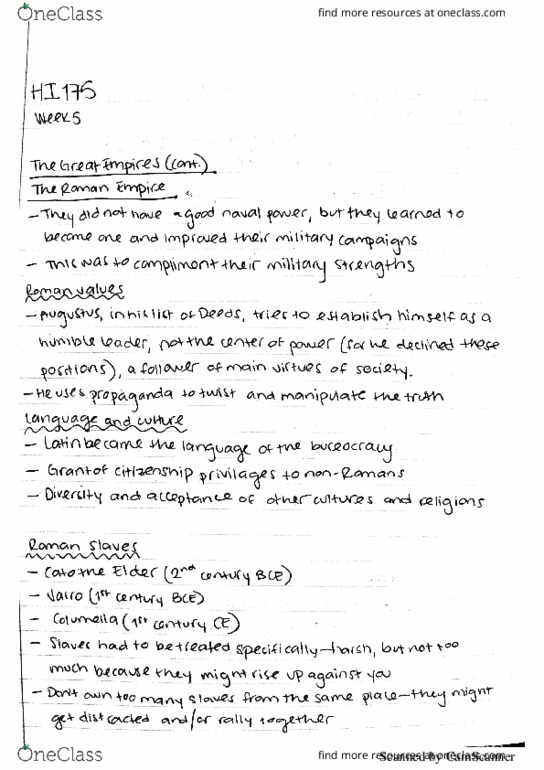 OneClass
find more resources at oneclass.com
HI175
Week 5
The Great Empires (cont.)
The Roman Empire
- They did not have a good naval power, but they learned to
become one and improved their military campaigns
- This was to compliment their military strengths
Roman values
- Augustus, in his list of Deeds, tries to establish himself as a
humble leader, not the center of power (for he declined these
positions), a follower of main virtues of society.
- He uses propaganda to twist and manipulate the truth
Language and culture
- Latin became the language of the bureocracy
- Grant of citizenship privilages to non-Romans
- Diversity and acceptance of other cultures and religions
Roman Slaves
- Cato the Elder (2nd century BCE)
- Varro (1st century BCE)
- Columella (1st century CE)
- Slaves had to be treated specifically-harsh, but not too
much because they might rise up against you
- Don't own too many slaves from the same place-they might
get distracted and/or rally together
OneClass
find more resources at oneclass.com
Scanned by CamScanner